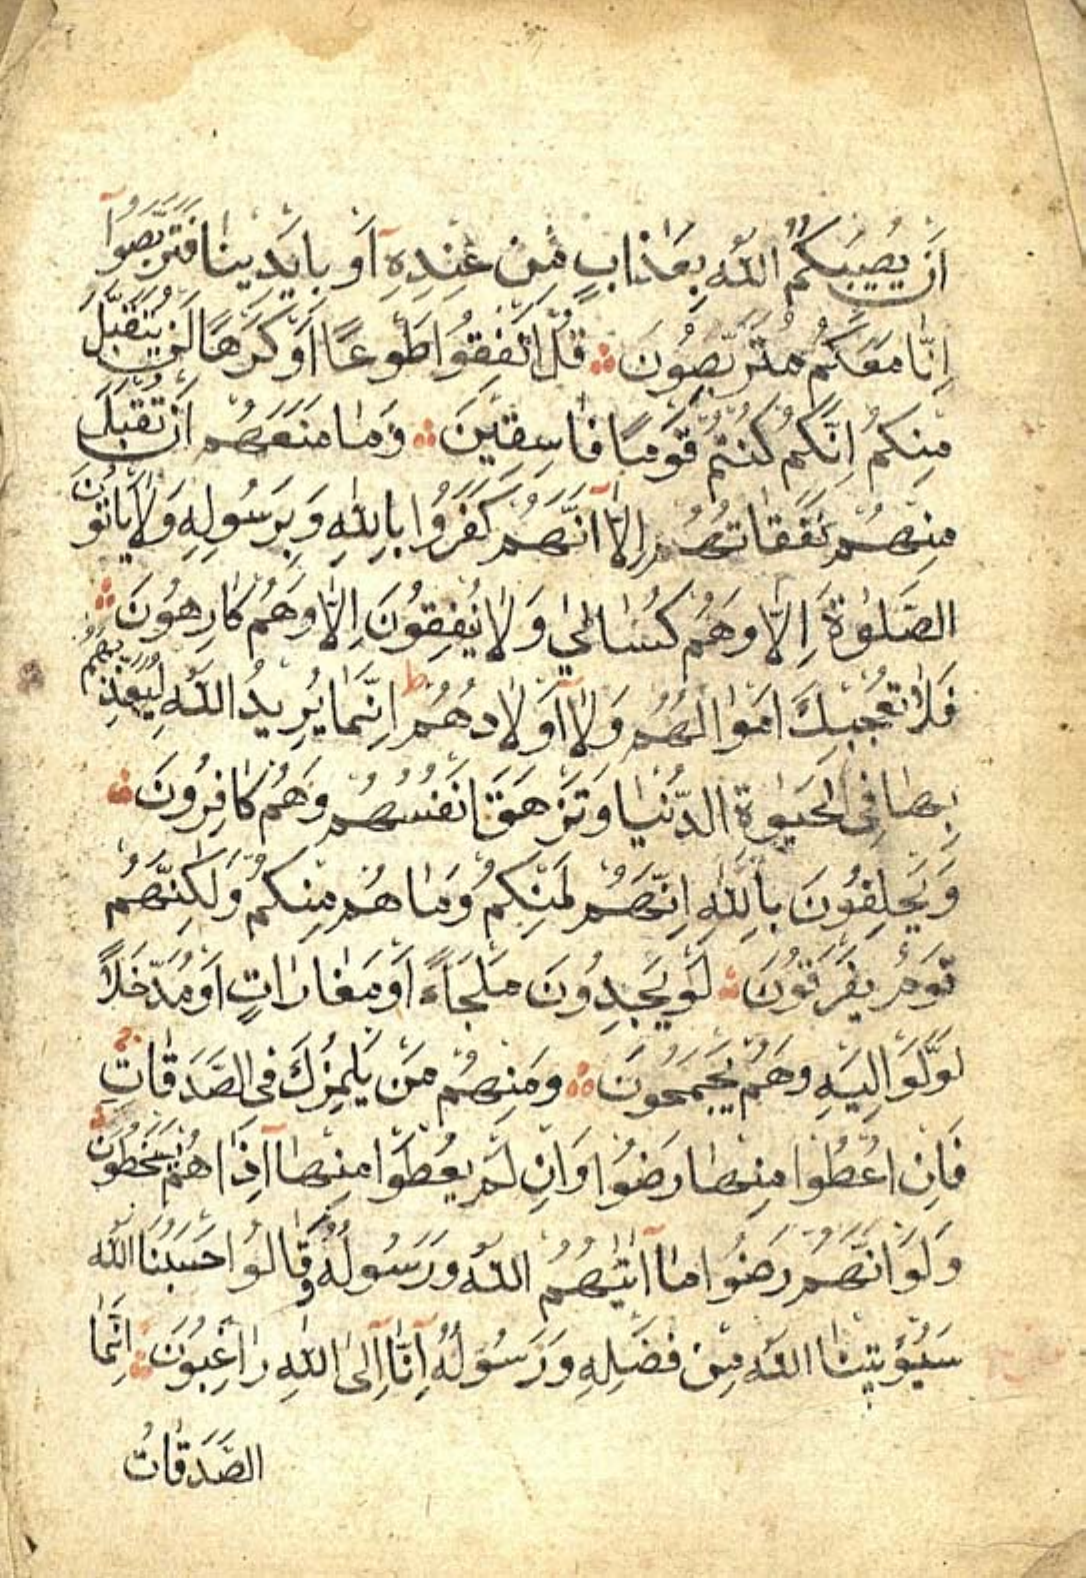 اَنْ يُصِيبَكُمُ اللّٰهُ بِعَذَابٍ مِنْ عِنْدِهِ اَوْ بِاَيْدِينَا فَتَرَبَّصُوا
اِنَّا مَعَكُمْ مُتَرَبِّصُونَ ؞ قُلْ اَنْفِقُوا طَوْعًا اَوْ كَرْهًا لَنْ يُتَقَبَّلَ
مِنْكُمْ اِنَّكُمْ كُنْتُمْ قَوْمًا فَاسِقِينَ ؞ وَمَا مَنَعَهُمْ اَنْ تُقْبَلَ
مِنْهُمْ نَفَقَاتُهُمْ اِلَّا اَنَّهُمْ كَفَرُوا بِاللّٰهِ وَبِرَسُولِهِ وَلَا يَأْتُونَ
الصَّلٰوةَ اِلَّا وَهُمْ كُسَالٰي وَلَا يُنْفِقُونَ اِلَّا وَهُمْ كَارِهُونَ ؞
فَلَا تُعْجِبْكَ اَمْوَالُهُمْ وَلَا اَوْلَادُهُمْ ط اِنَّمَا يُرِيدُ اللّٰهُ لِيُعَذِّبَهُمْ
بِهَا فِي الْحَيٰوةِ الدُّنْيَا وَتَزْهَقَ اَنْفُسُهُمْ وَهُمْ كَافِرُونَ ؞
وَيَحْلِفُونَ بِاللّٰهِ اِنَّهُمْ لَمِنْكُمْ وَمَا هُمْ مِنْكُمْ وَلٰكِنَّهُمْ
قَوْمٌ يَفْرَقُونَ ؞ لَوْ يَجِدُونَ مَلْجَاءً اَوْ مَغَارَاتٍ اَوْ مُدَّخَلًا
لَوَلَّوْا اِلَيْهِ وَهُمْ يَجْمَحُونَ ؞ وَمِنْهُمْ مَنْ يَلْمِزُكَ فِي الصَّدَقَاتِ ج
فَاِنْ اُعْطُوا مِنْهَا رَضُوا وَاِنْ لَمْ يُعْطَوْا مِنْهَا اِذَا هُمْ يَسْخَطُونَ ؞
وَلَوْ اَنَّهُمْ رَضُوا مَا اٰتٰيهُمُ اللّٰهُ وَرَسُولُهُ وَقَالُوا حَسْبُنَا اللّٰهُ
سَيُؤْتِينَا اللّٰهُ مِنْ فَضْلِهِ وَرَسُولُهُ اِنَّا اِلَى اللّٰهِ رَاغِبُونَ ؞ اِنَّمَا
الصَّدَقَاتُ